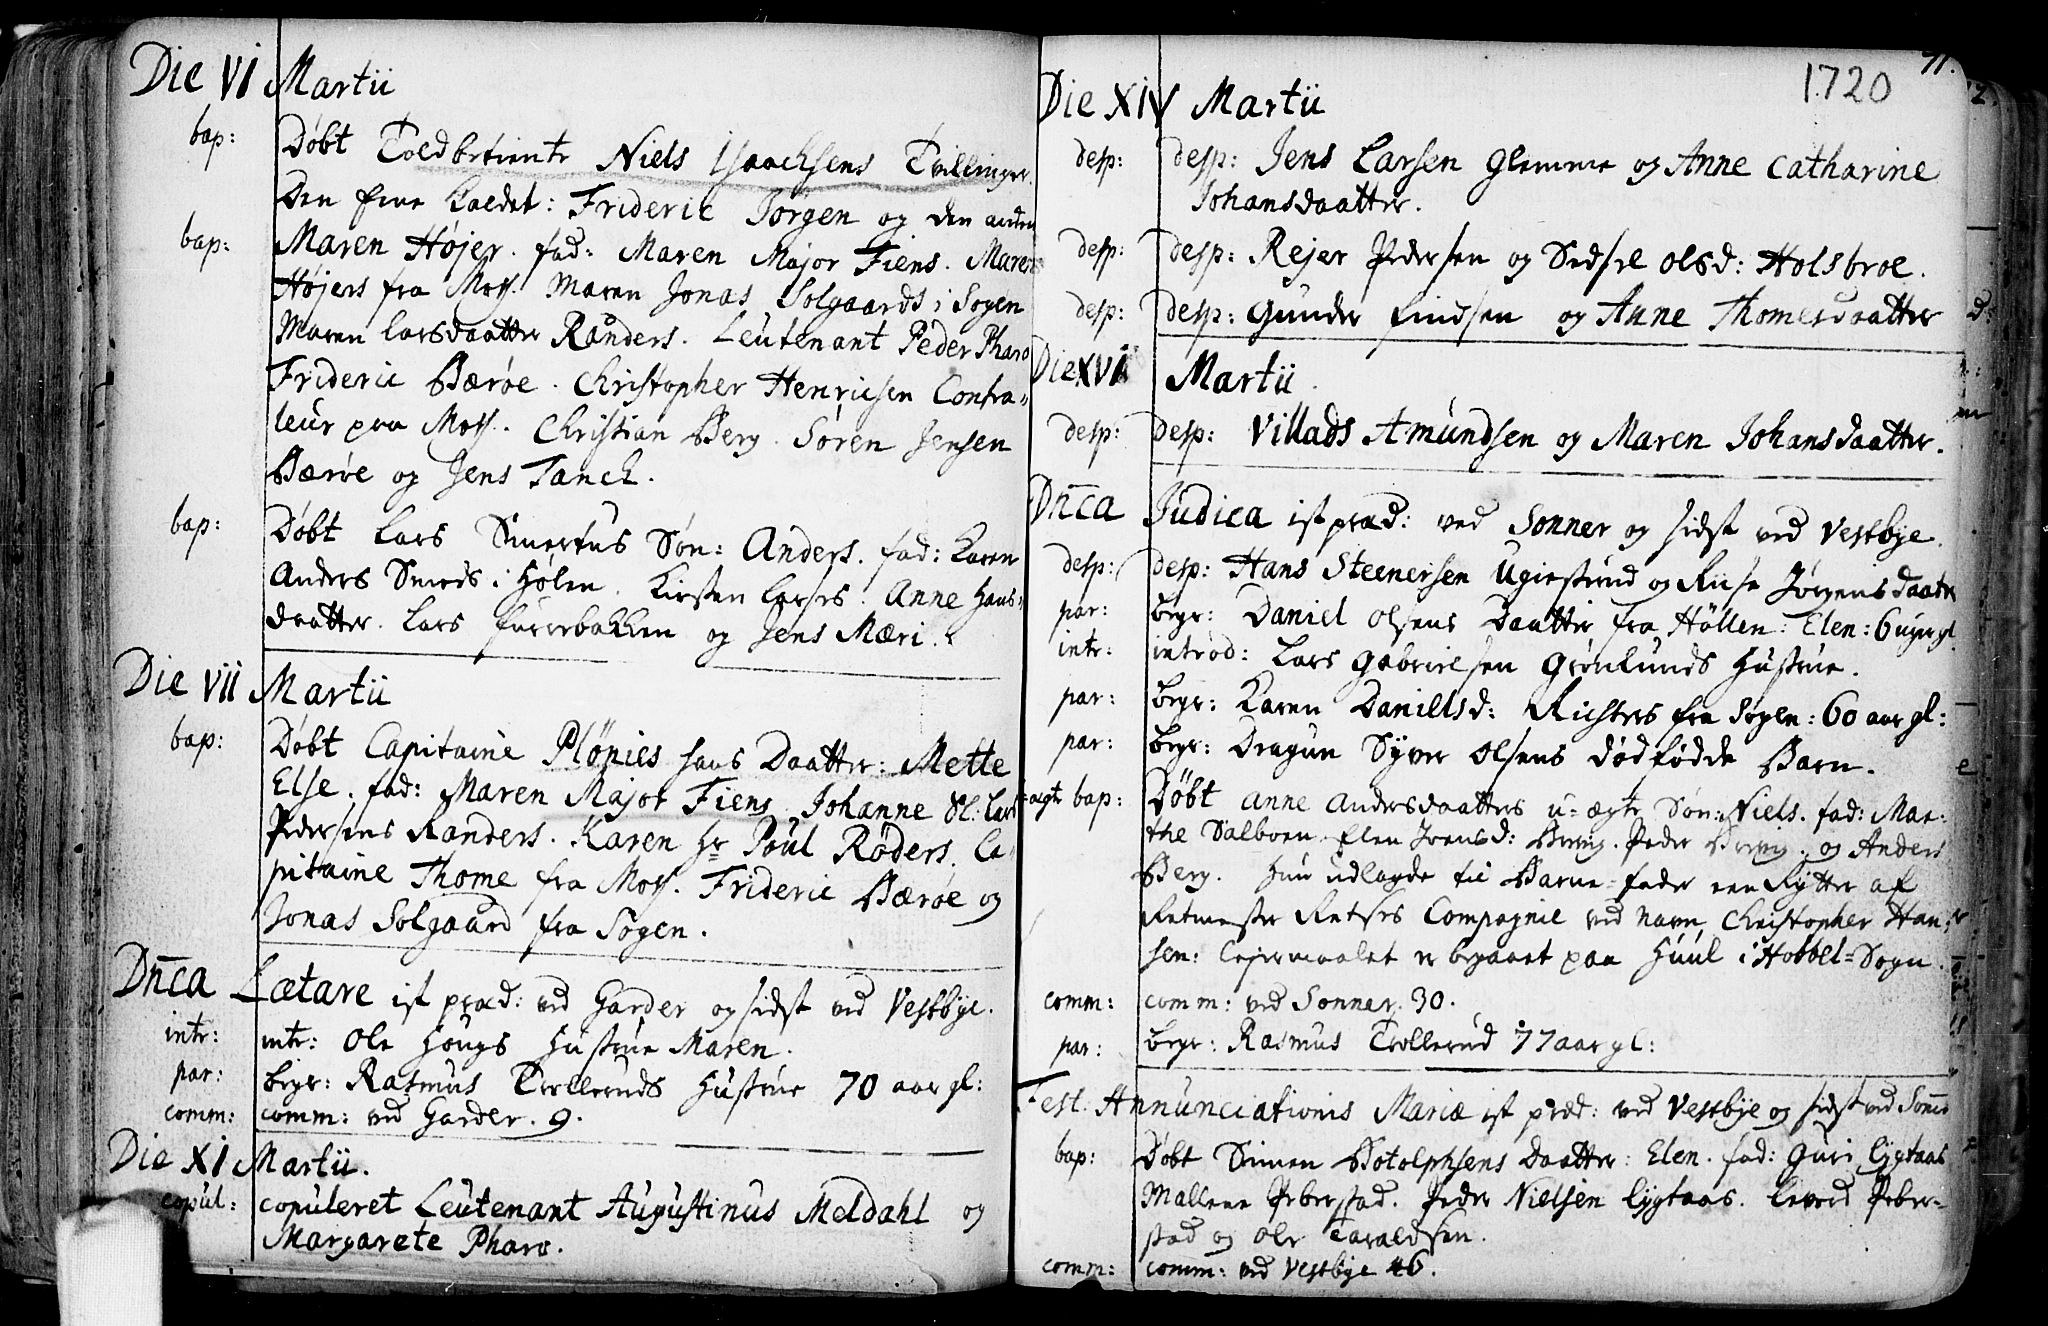 Die VI Martii
bap: Døbt Toldbetiente Niels Isaachsens Tvillinger.
Den eine kaldet: Frideric Jørgen og den anden
bap: Maren Højer. fad: Maren Major Fiens. Maren
Højers fra Moss. Maren Jonas Solgaards i Sogen
Maren Larsdaatter Randers. Leutenant Peder Pharo
Frideric Bærøe. Christopher Henricsen Contra-
leur paa Moss. Christian Berg. Søren Jensen
Bærøe og Jens Tanck.
bap: Døbt Lars Søn: Anders. fad: Karen
Anders Smeds i Hølen. Kirsten Larses. Anne Hans-
daatter. Lars furrebakken og Jens Mæri.
Die VII Martii
bap: Døbt Capitaine Plönies hans Daatter: Mette
Else. fad: Maren Major Fiens. Johanne Sl: Lars
Pedersens Randers. Karen Hr Poul Röders. Ca-
pitaine Thome fra Moss. Frideric Bærøe og
Jonas Solgaard fra Sogen.
Dnca Lætare ist præd: ved Garder og sidst ved Vestbye.
intr: intr: Ole Hougs Hustrue Maren.
par: begr: Rasmus Trolleruds Hustrue 70 aar gl:
comm: comm: ved Garder. 9.
Die XI Martii.
copul: copuleret Leutenant Augustinus Meldahl og
Margarete Pharo.
71.
1720
Die XIV Martii
desp: desp: Jens Larsen Glemme og Anne Catharine
Johansdaatter.
desp: desp: Rejer Pedersen og Sidsel Olsd: Holsbroe.
desp: desp: Gunder Findsen og Anne Thomesdaatter
Die XVI Martii.
desp: desp: Villads Amundsen og Maren Johansdaatter.
Dnca Judica ist præd: ved Sonner og sidst ved Vestbye.
desp: desp: Hans Steenersen og Riise Jørgensdaatr
par: begr: Daniel Olsens Daatter fra Höllen: Elen: 6 uger gl.
intr: introd: Lars Gabrielsen Grønlunds Hustrue.
par: begr: Karen Danielsd: Richters fra Sogen: 60 aar gl:
par: begr: Dragun Syver Olsens dødfødde Barn.
uægte bap: Døbt Anne Andersdaatters u-ægte Søn: Niels. fad: Mar-
the Salboen. Elen Joensd: Peder og Anders
Berg. Hun udlagde til Barne-fader een Rytter af
Ritmester Compagnie ved navn Christopher Han-
sen: Lejermaalet er begaaet paa Huul i Hobbel-Sogn.
comm: comm: ved Sonner. 30.
par: begr: Rasmus Trollerud 77 aar gl:
Fest. Annunciationis Mariæ ist præd: ved Vestbye og sidst ved Sonner
bap: Døbt Simen Botolphsens Daatter: Elen. fad: Guri Lygtaas
Mallene Peberstad. Peder Nielsen Lygtaas. Levord Peber-
stad og Ole Taraldsen.
comm: comm: ved Vestbye 46.